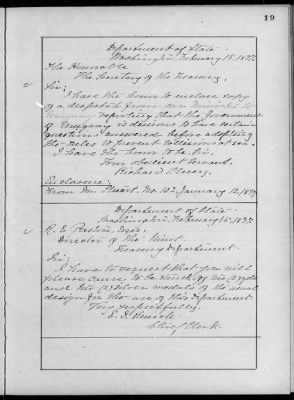 19
Department of State
Washington, February 15, 1897.
The Honorable
The Secretary of the Treasury.
Sir:
I have the honor to enclose copy
of a despatch from our Minister to
Uruguay reporting that the Government
of Uruguay is desirous to have certain
questions answered before adopting
the rules to prevent collisions at sea.
I have the honor to be, Sir,
Your obedient servant,
Richard Olney.
Enclosure:
From Mr. Stuart, No. 102, January 12, 1897.
Department of State
Washington, February 15, 1897.
R. E. Preston, Esqr.
Director of the Mint,
Treasury Department.
Sir:
I have to request that you will
please cause to be struck
and two (2) silver medals of the usual
design for the use of this Department.
Very respectfully,
E. I. Renick
Chief Clerk.